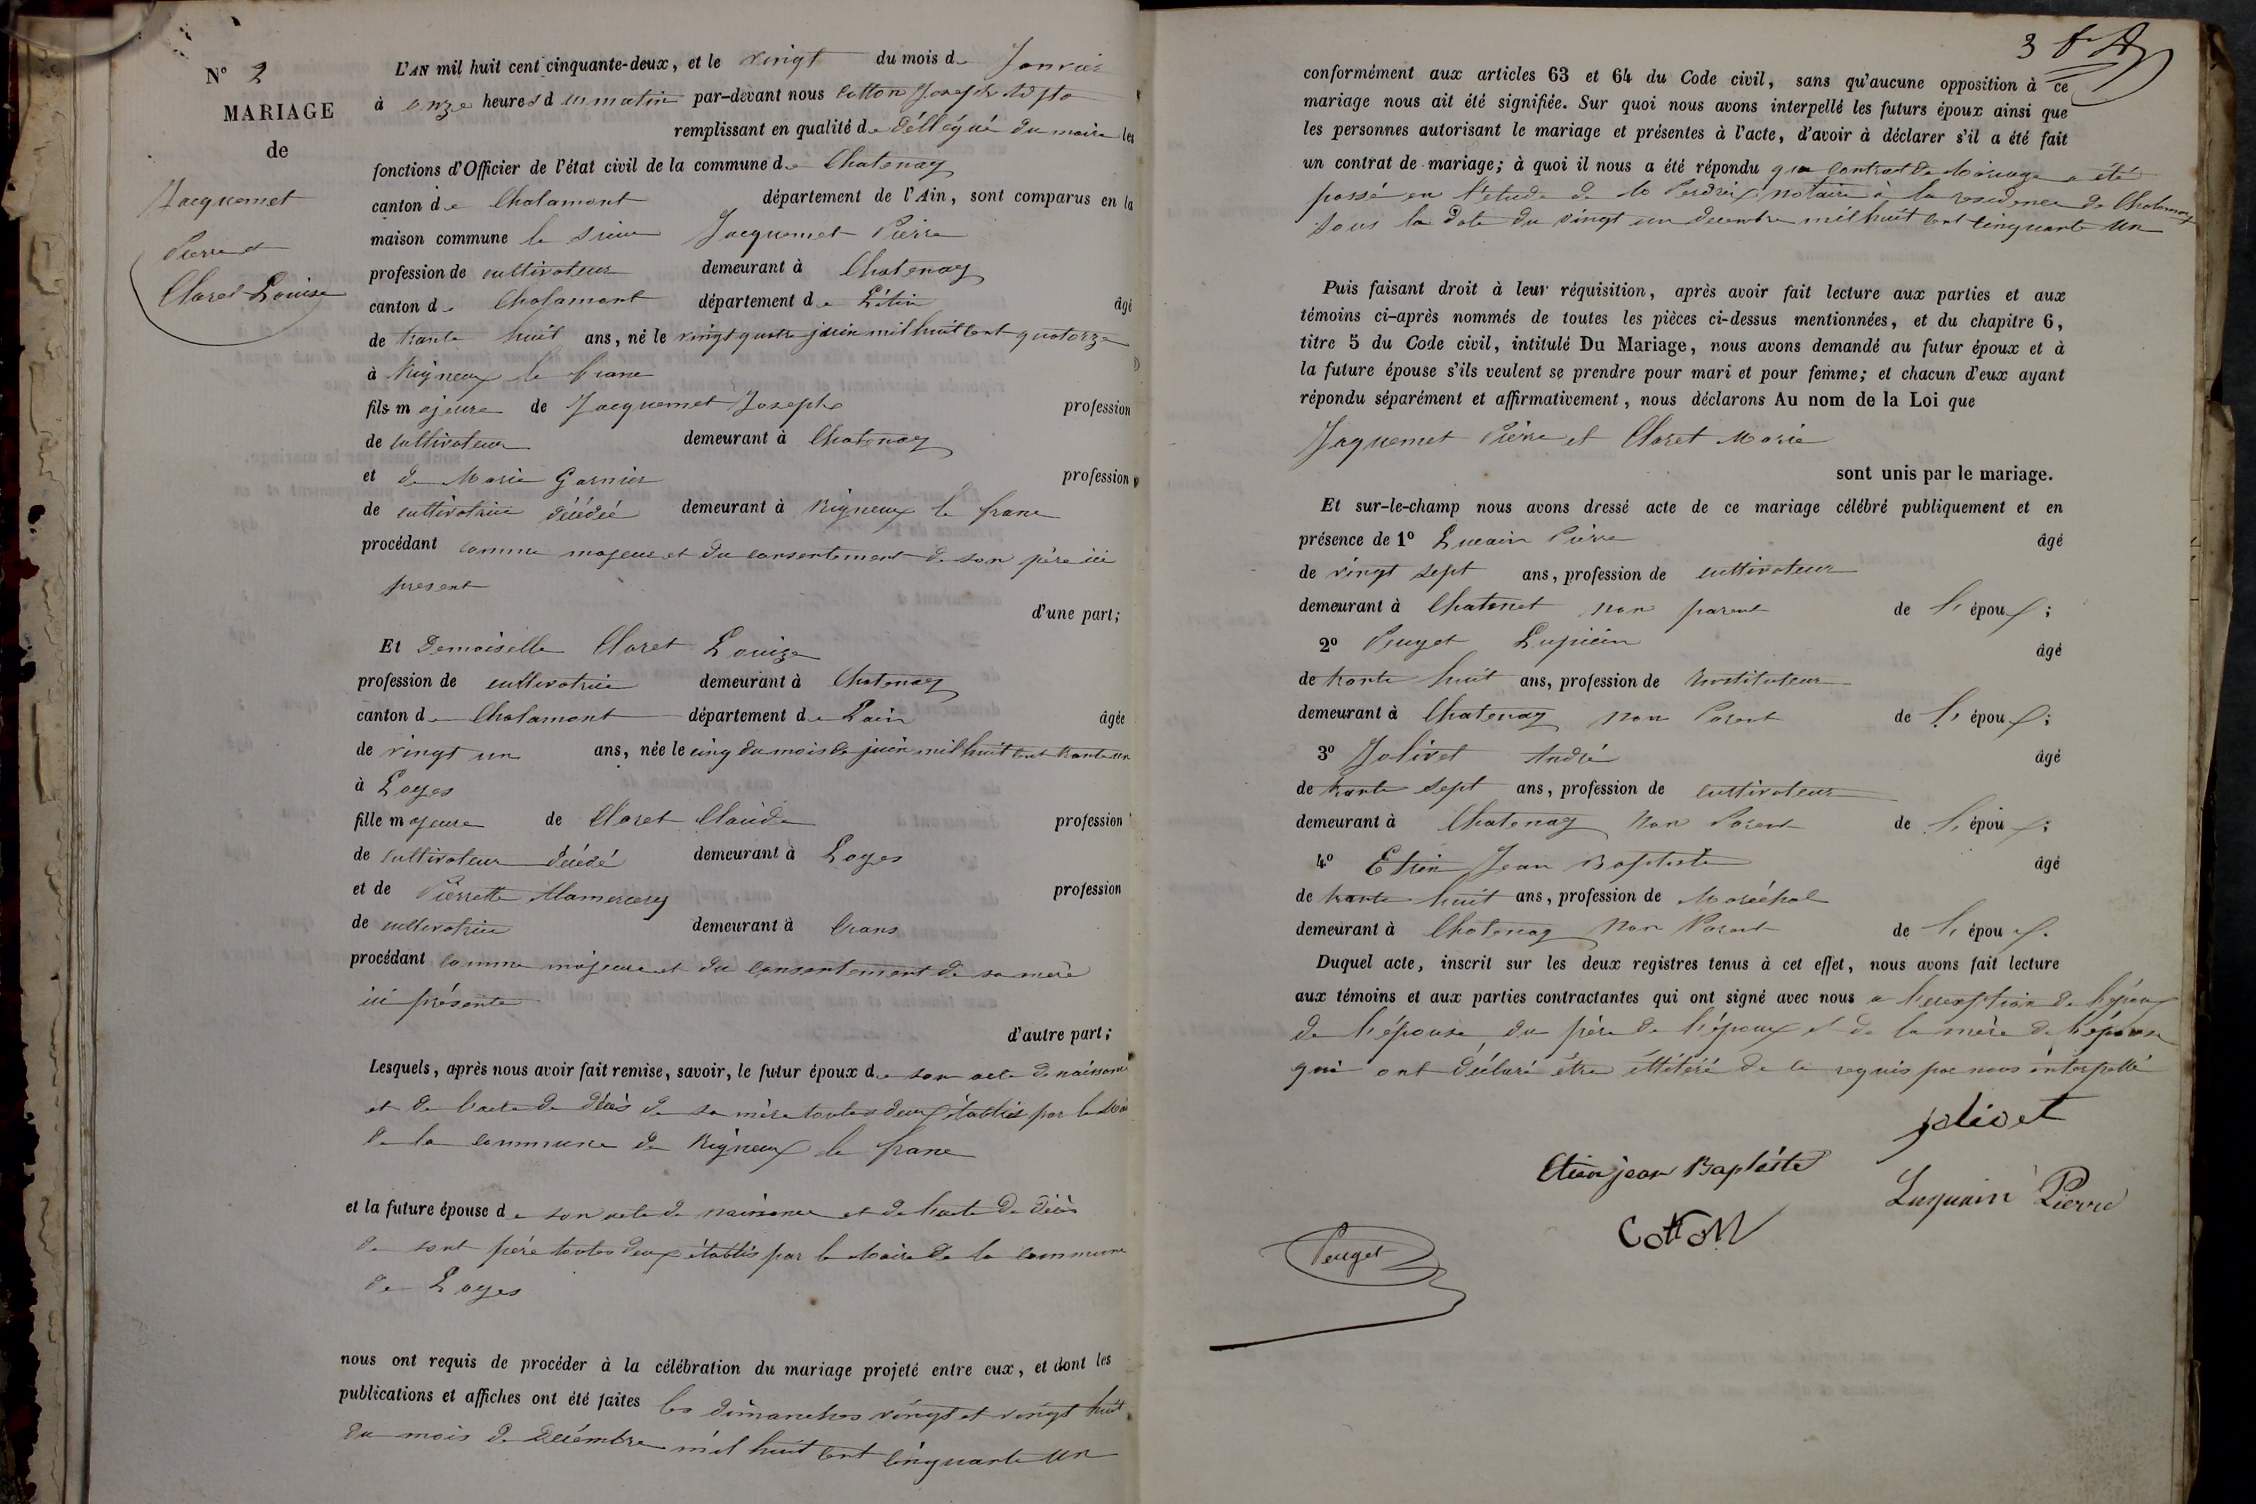 N° 2
MARIAGE
de
Jacquemet
Pierre et
Claret Louise
L'AN mil huit cent cinquante-deux, et le vingt du mois de Janvier
à onze heures d u matin par-devant nous Cotton Joseph
remplissant en qualité de délégué du maire les
fonctions d'Officier de l'état civil de la commune de Chatenay
canton de Chalamont département de l'Ain, sont comparus en la
maison commune le sieur Jacquemet Pierre
profession de cultivateur demeurant à Chatenay
canton de Chalamont département de L'Ain âgé
de trante huit ans, né le vingt quatre juin mil huit cent quatorze
à Rigneux le franc
fils majeure de Jacquemet Joseph profession
de cultivateur demeurant à Chatenay
et de Marie Garnier profession
de cultivatrice décédée demeurant à Rigneux le franc
procédant comme majeur et du consentement de son père ici
present
d'une part;
Et Demoiselle Claret Louize
profession de cultivatrice demeurant à Chatenay
canton de Chalamont département de Lain âgée
de vingt un ans, née le cinq du mois de juin mil huit cent trante un
à Loyes
fille majeure de Claret Claude profession
de cultivateur décédé demeurant à Loyes
et de Pierrette Mamercery profession
de cultivatrice demeurant à Crans
procédant comme majeure et du consentement de sa mère
ici présente
d'autre part;
Lesquels, après nous avoir fait remise, savoir, le futur époux de son acte de naissance
et de l'acte de décès de sa mère toutes deux établies par le Maire
de la commune de Rigneux le franc
et la future épouse de son acte de naissance et de l'acte de décès
de sont père toutes deux établis par le Maire de la commune
de Loyes
nous ont requis de procéder à la célébration du mariage projeté entre eux, et dont les
publications et affiches ont été faites les dimanches vingt et vingt huit
du mois de Décembre mil huit cent cinquante un
3
conformément aux articles 63 et 64 du Code civil, sans qu'aucune opposition à ce
mariage nous ait été signifiée. Sur quoi nous avons interpellé les futurs époux ainsi que
les personnes autorisant le mariage et présentes à l'acte, d'avoir à déclarer s'il a été fait
un contrat de mariage; à quoi il nous a été répondu que contrat de Mariage a été
passé en l'étude de Mr Perdrix notaire à la residence de Chalamont
sous la date du vingt un decembre mil huit cent cinquante un
Puis faisant droit à leur réquisition, après avoir fait lecture aux parties et aux
témoins ci-après nommés de toutes les pièces ci-dessus mentionnées, et du chapitre 6,
titre 5 du Code civil, intitulé Du Mariage, nous avons demandé au futur époux et à
la future épouse s'ils veulent se prendre pour mari et pour femme; et chacun d'eux ayant
répondu séparément et affirmativement, nous déclarons Au nom de la Loi que
Jaquemet Pierre et Claret Marie
sont unis par le mariage.
Et sur-le-champ nous avons dressé acte de ce mariage célébré publiquement et en
présence de 1° Lucain Pierre âgé
de vingt sept ans, profession de cultivateur
demeurant à Chatenet non parent de l'époux;
2° Peuget Lupicin âgé
de trante huit ans, profession de Instituteur
demeurant à Chatenay non Parent de l'époux;
3° Jolivet André âgé
de trante sept ans, profession de cultivateur
demeurant à Chatenay non Parent de l'époux;
4° Etien Jean Baptiste âgé
de trante huit ans, profession de Maréchal
demeurant à Chatenay Non Parent de l'époux.
Duquel acte, inscrit sur les deux registres tenus à cet effet, nous avons fait lecture
aux témoins et aux parties contractantes qui ont signé avec nous a l'exception de l'époux
de l'épouse du père de l'époux et de la mère de l'épouse
qui ont déclaré être illétéré de ce requis par nous interpellé
jolivet
Etien jean Baptiste
Luquain Pierre
Cotton
Peuget